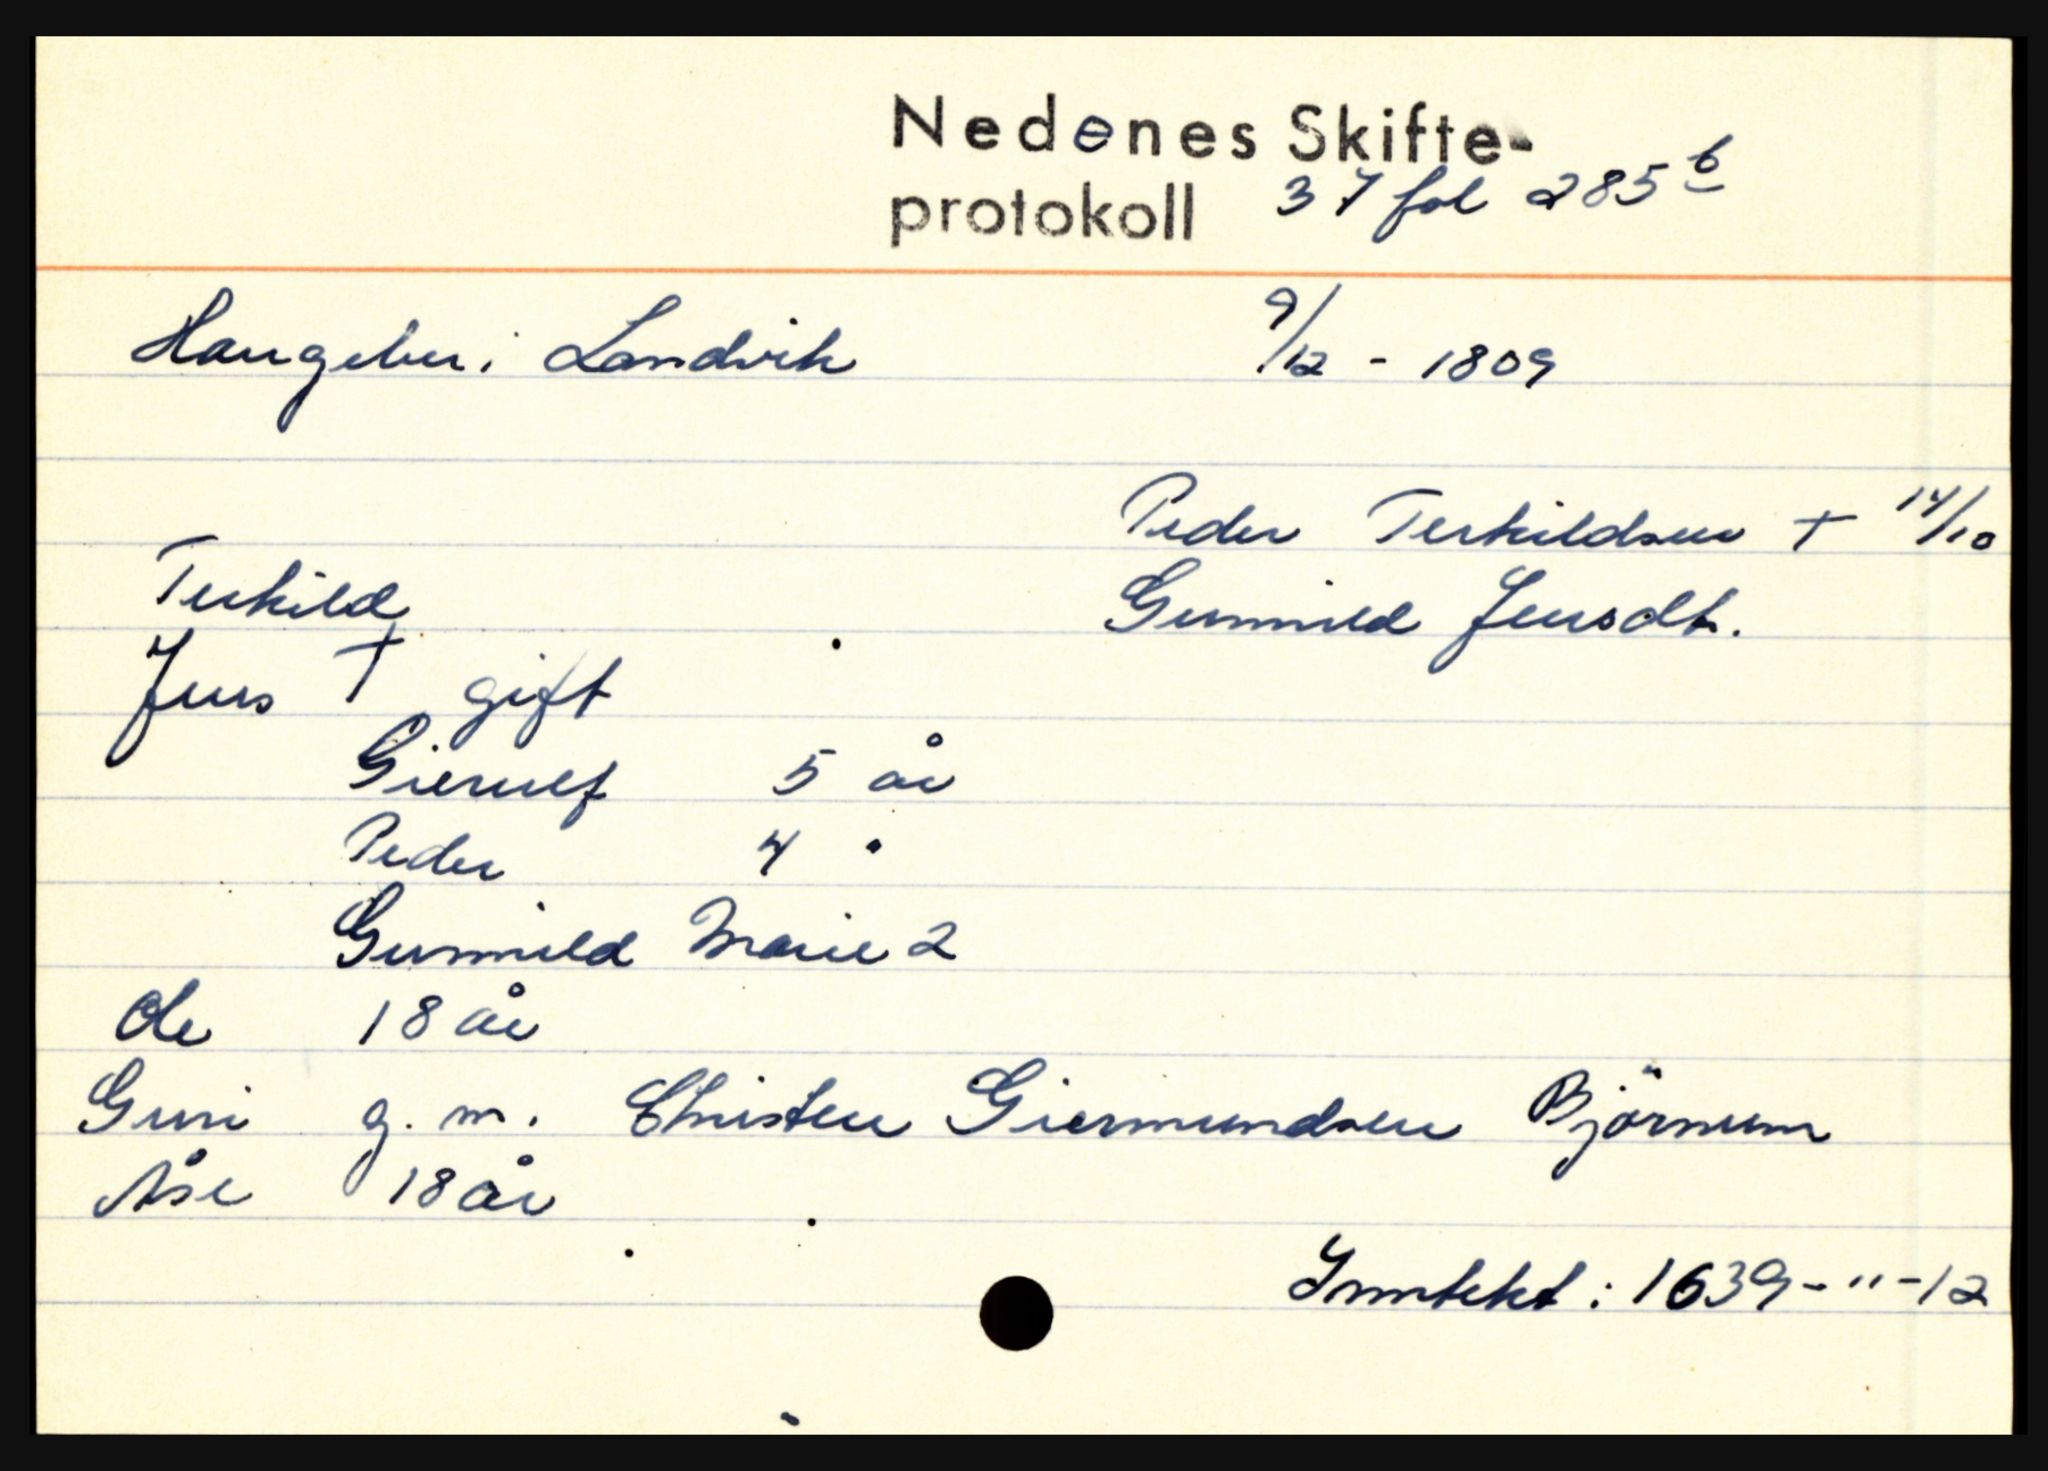 Nedenes Skifte-
protokoll 37 fol 285 b
Haugeber i Landvik 9/12 - 1809
Peder Terkildsen + 14/10
Terkild
Gunnild Jensdt.
Jens + gift
Gierulf 5 år
Peder 4 "
Gunnild Marie 2
Ole 18 år
Guri g. m. Christen Giermundsen Björnum
Åse 18 år
Inntekt : 1639 - " - 12